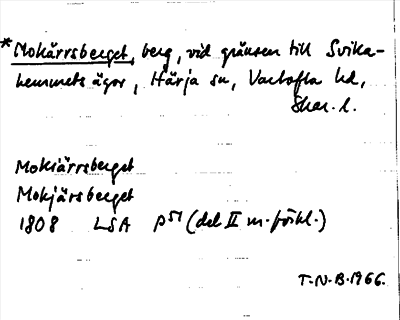 *Mokärrsberget, berg, vid gränsen till Svika-
hemmets ägor, Härja sn, Vartofta hd,
Skar. l.
Mokiärrsberget
Mokjärsberget
1808 LSA P51 (del II m. förkl.)
T.N.B. 1966.